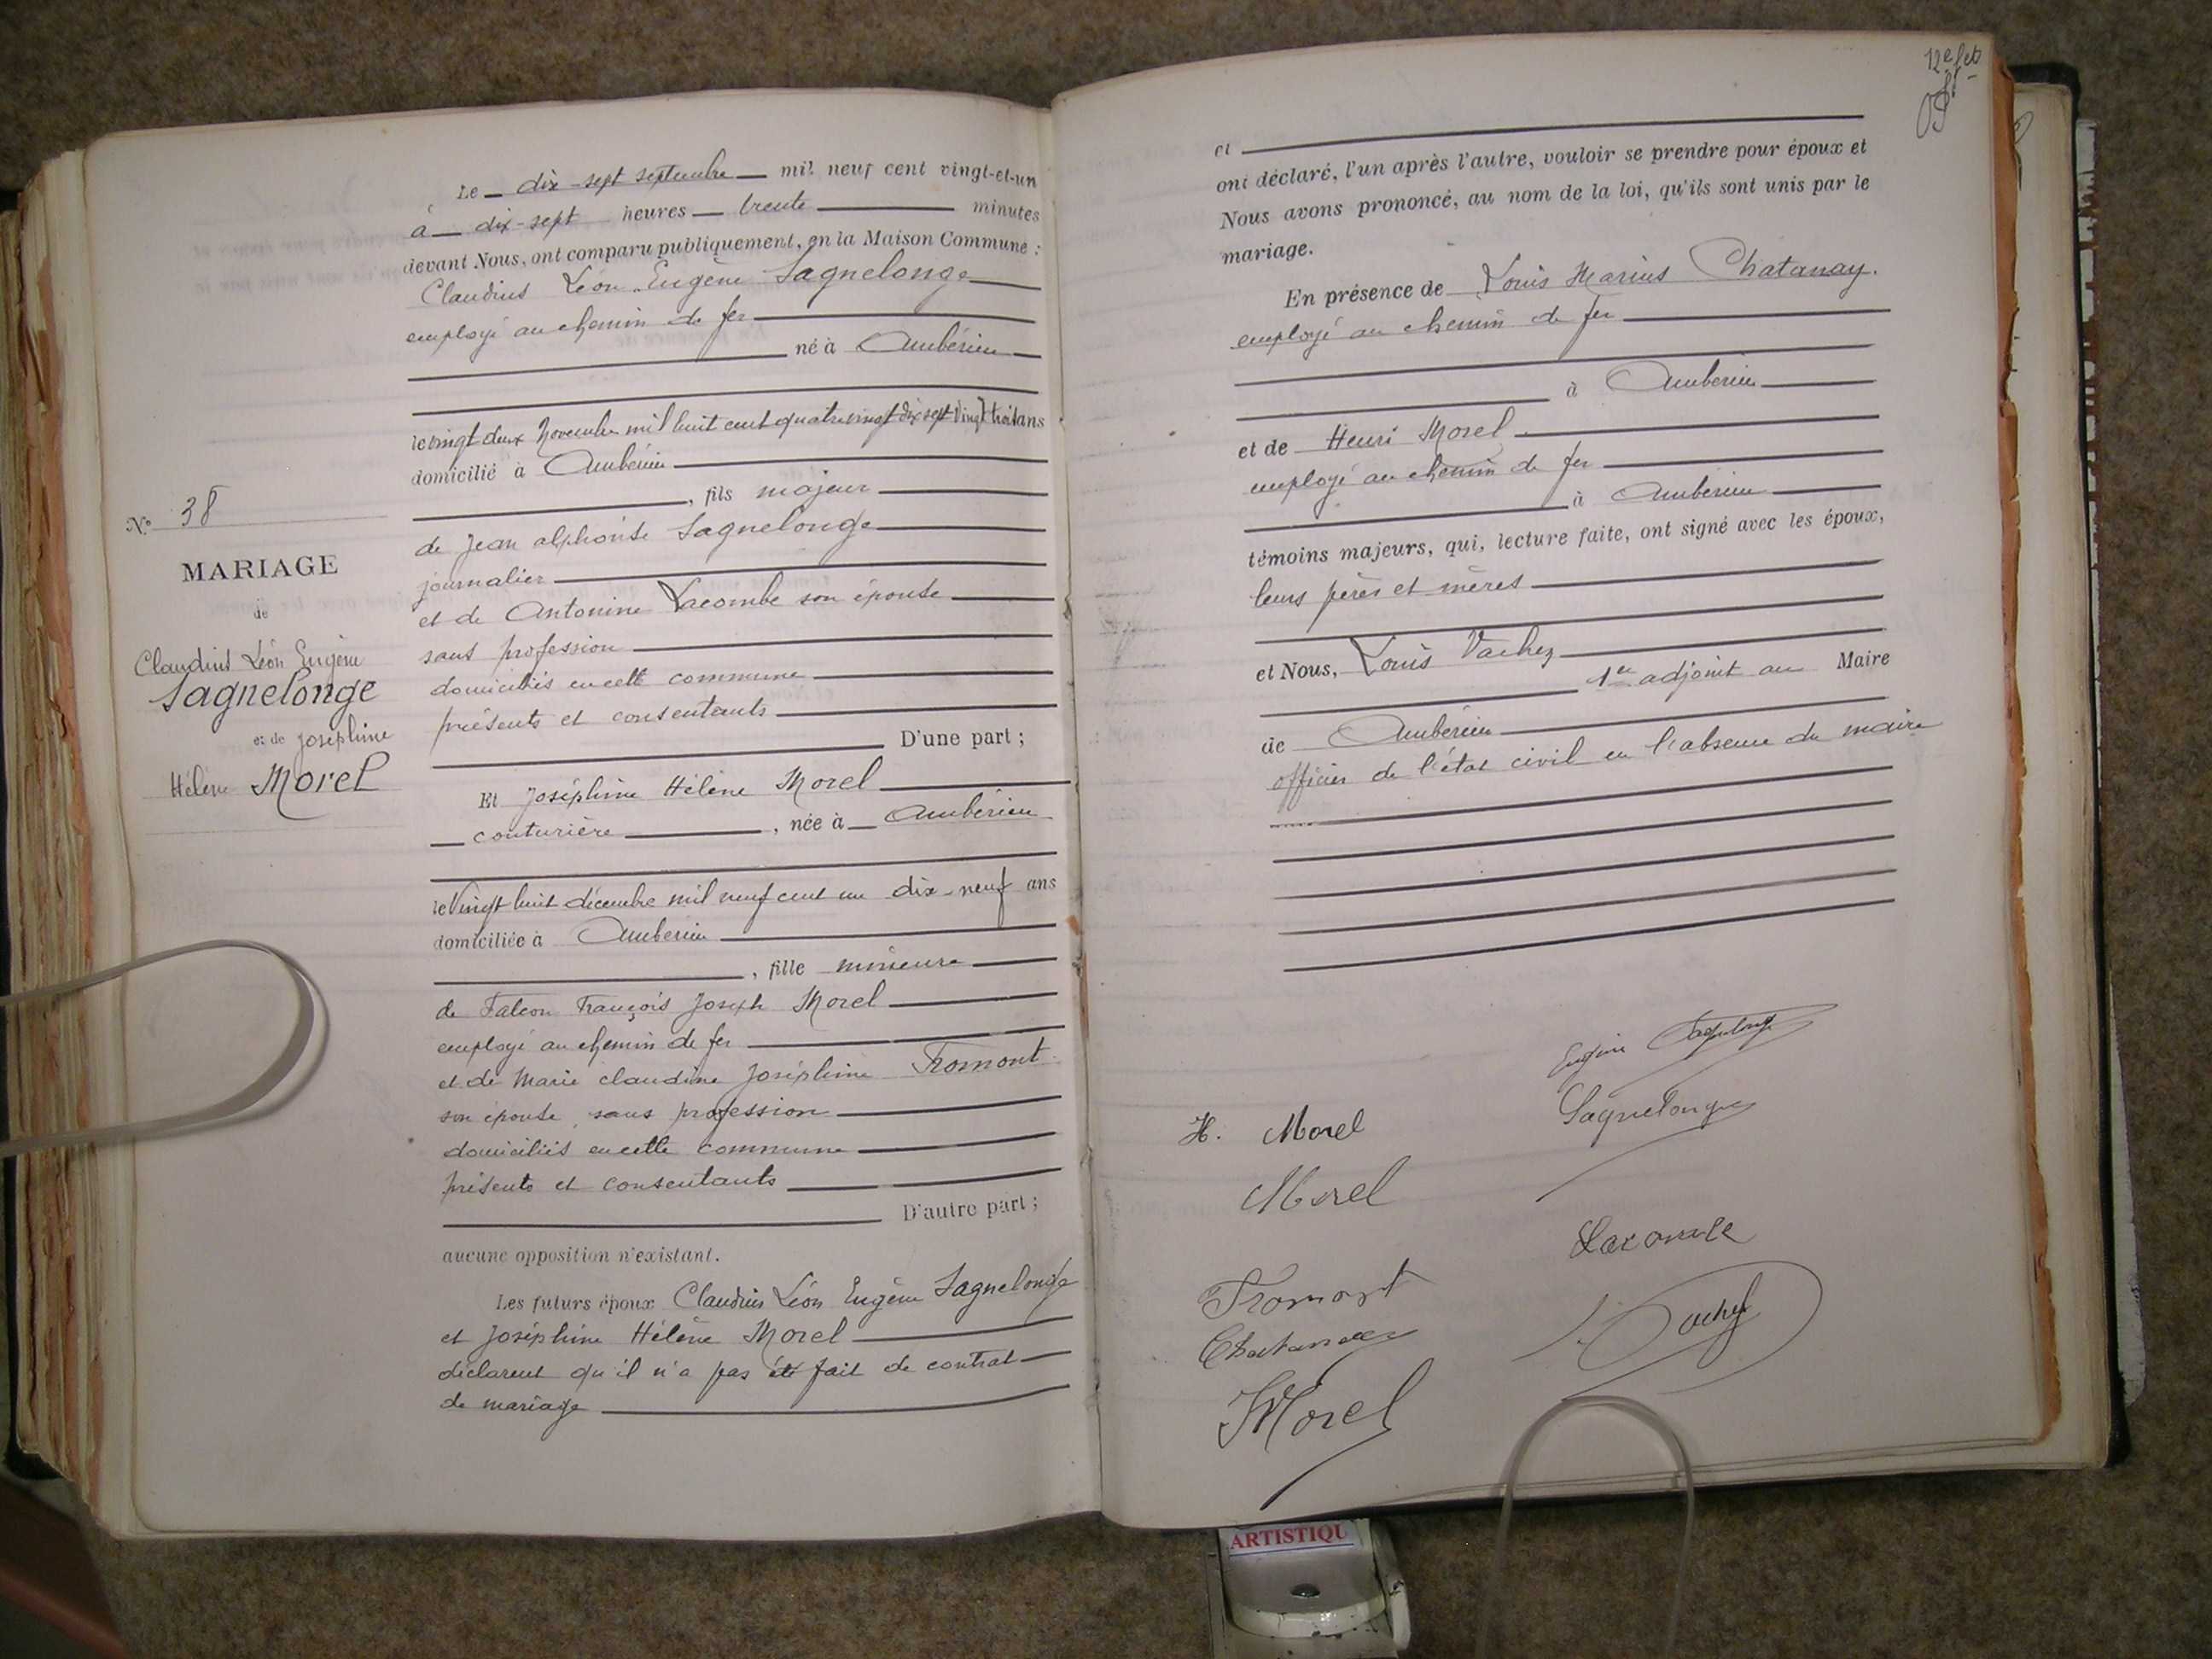 N° 38
MARIAGE
de
Claudius Léon Eugène
Sagnelonge
et de Joséphine
Hélène Morel
Le dix-sept septembre mil neuf cent vingt-et-un
à dix-sept heures trente minutes
devant Nous, ont comparu publiquement, en la Maison Commune :
Claudius Léon Eugène Sagnelonge
employé au chemin de fer
né à Ambérieu
le vingt deux Novembre mil huit cent quatre vingt dix sept vingt trois ans
domicilié à Ambérieu
, fils majeur
de Jean alphonse Sagnelonge
journalier
et de Antonine Lacombe son épouse
sans profession
domiciliés en cette commune
présents et consentants
D'une part ;
Et Joséphine Hélène Morel
couturière , née à Ambérieu
le Vingt huit décembre mil neuf cent un dix-neuf ans
domiciliée à Ambérieu
, fille mineure
de Falcon François Joseph Morel
employé au chemin de fer
et de Marie Claudine Joséphine Fromont
son épouse, sans profession
domiciliés en cette commune
présents et consentants
D'autre part ;
aucune opposition n'existant.
Les futurs époux Claudius Léon Eugène Sagnelonge
et Joséphine Hélène Morel
déclarent qu'il n'a pas été fait de contrat
de mariage
12e
et
ont déclaré, l'un après l'autre, vouloir se prendre pour époux et
Nous avons prononcé, au nom de la loi, qu'ils sont unis par le
mariage.
En présence de Louis Marius Chatanay.
employé au chemin de fer
à Ambérieu
et de Henri Morel
employé au chemin de fer
à Ambérieu
témoins majeurs, qui, lecture faite, ont signé avec les époux,
leurs pères et mères
et Nous, Louis Vachez
1er adjoint au Maire
de Ambérieu
officier de l'état civil en l'absence du maire
Eugène Sagnelonge
H. Morel
Sagnelonge
Morel
Lacombe
Fromont
Chatanay
L. Vachez
Morel
ARTISTIQU